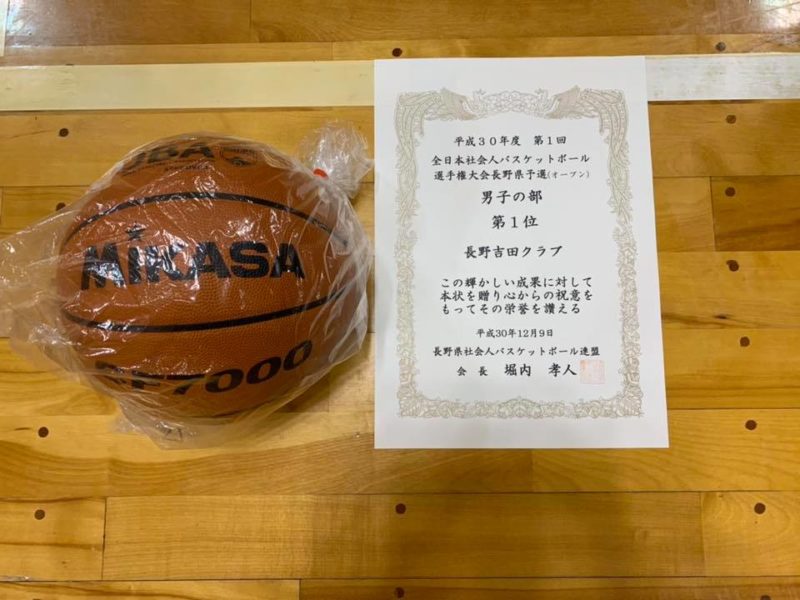 MIKASA
7000
平成30年度 第1回
全日本社会人バスケットボール
選手権大会長野県予選(オープン)
男子の部
第1位
長野吉田クラブ
この輝かしい成果に対して
本状を贈り心からの祝意を
もってその栄誉を讃える
平成30年12月9日
長野県社会人バスケットボール連盟
会長 堀内 孝人